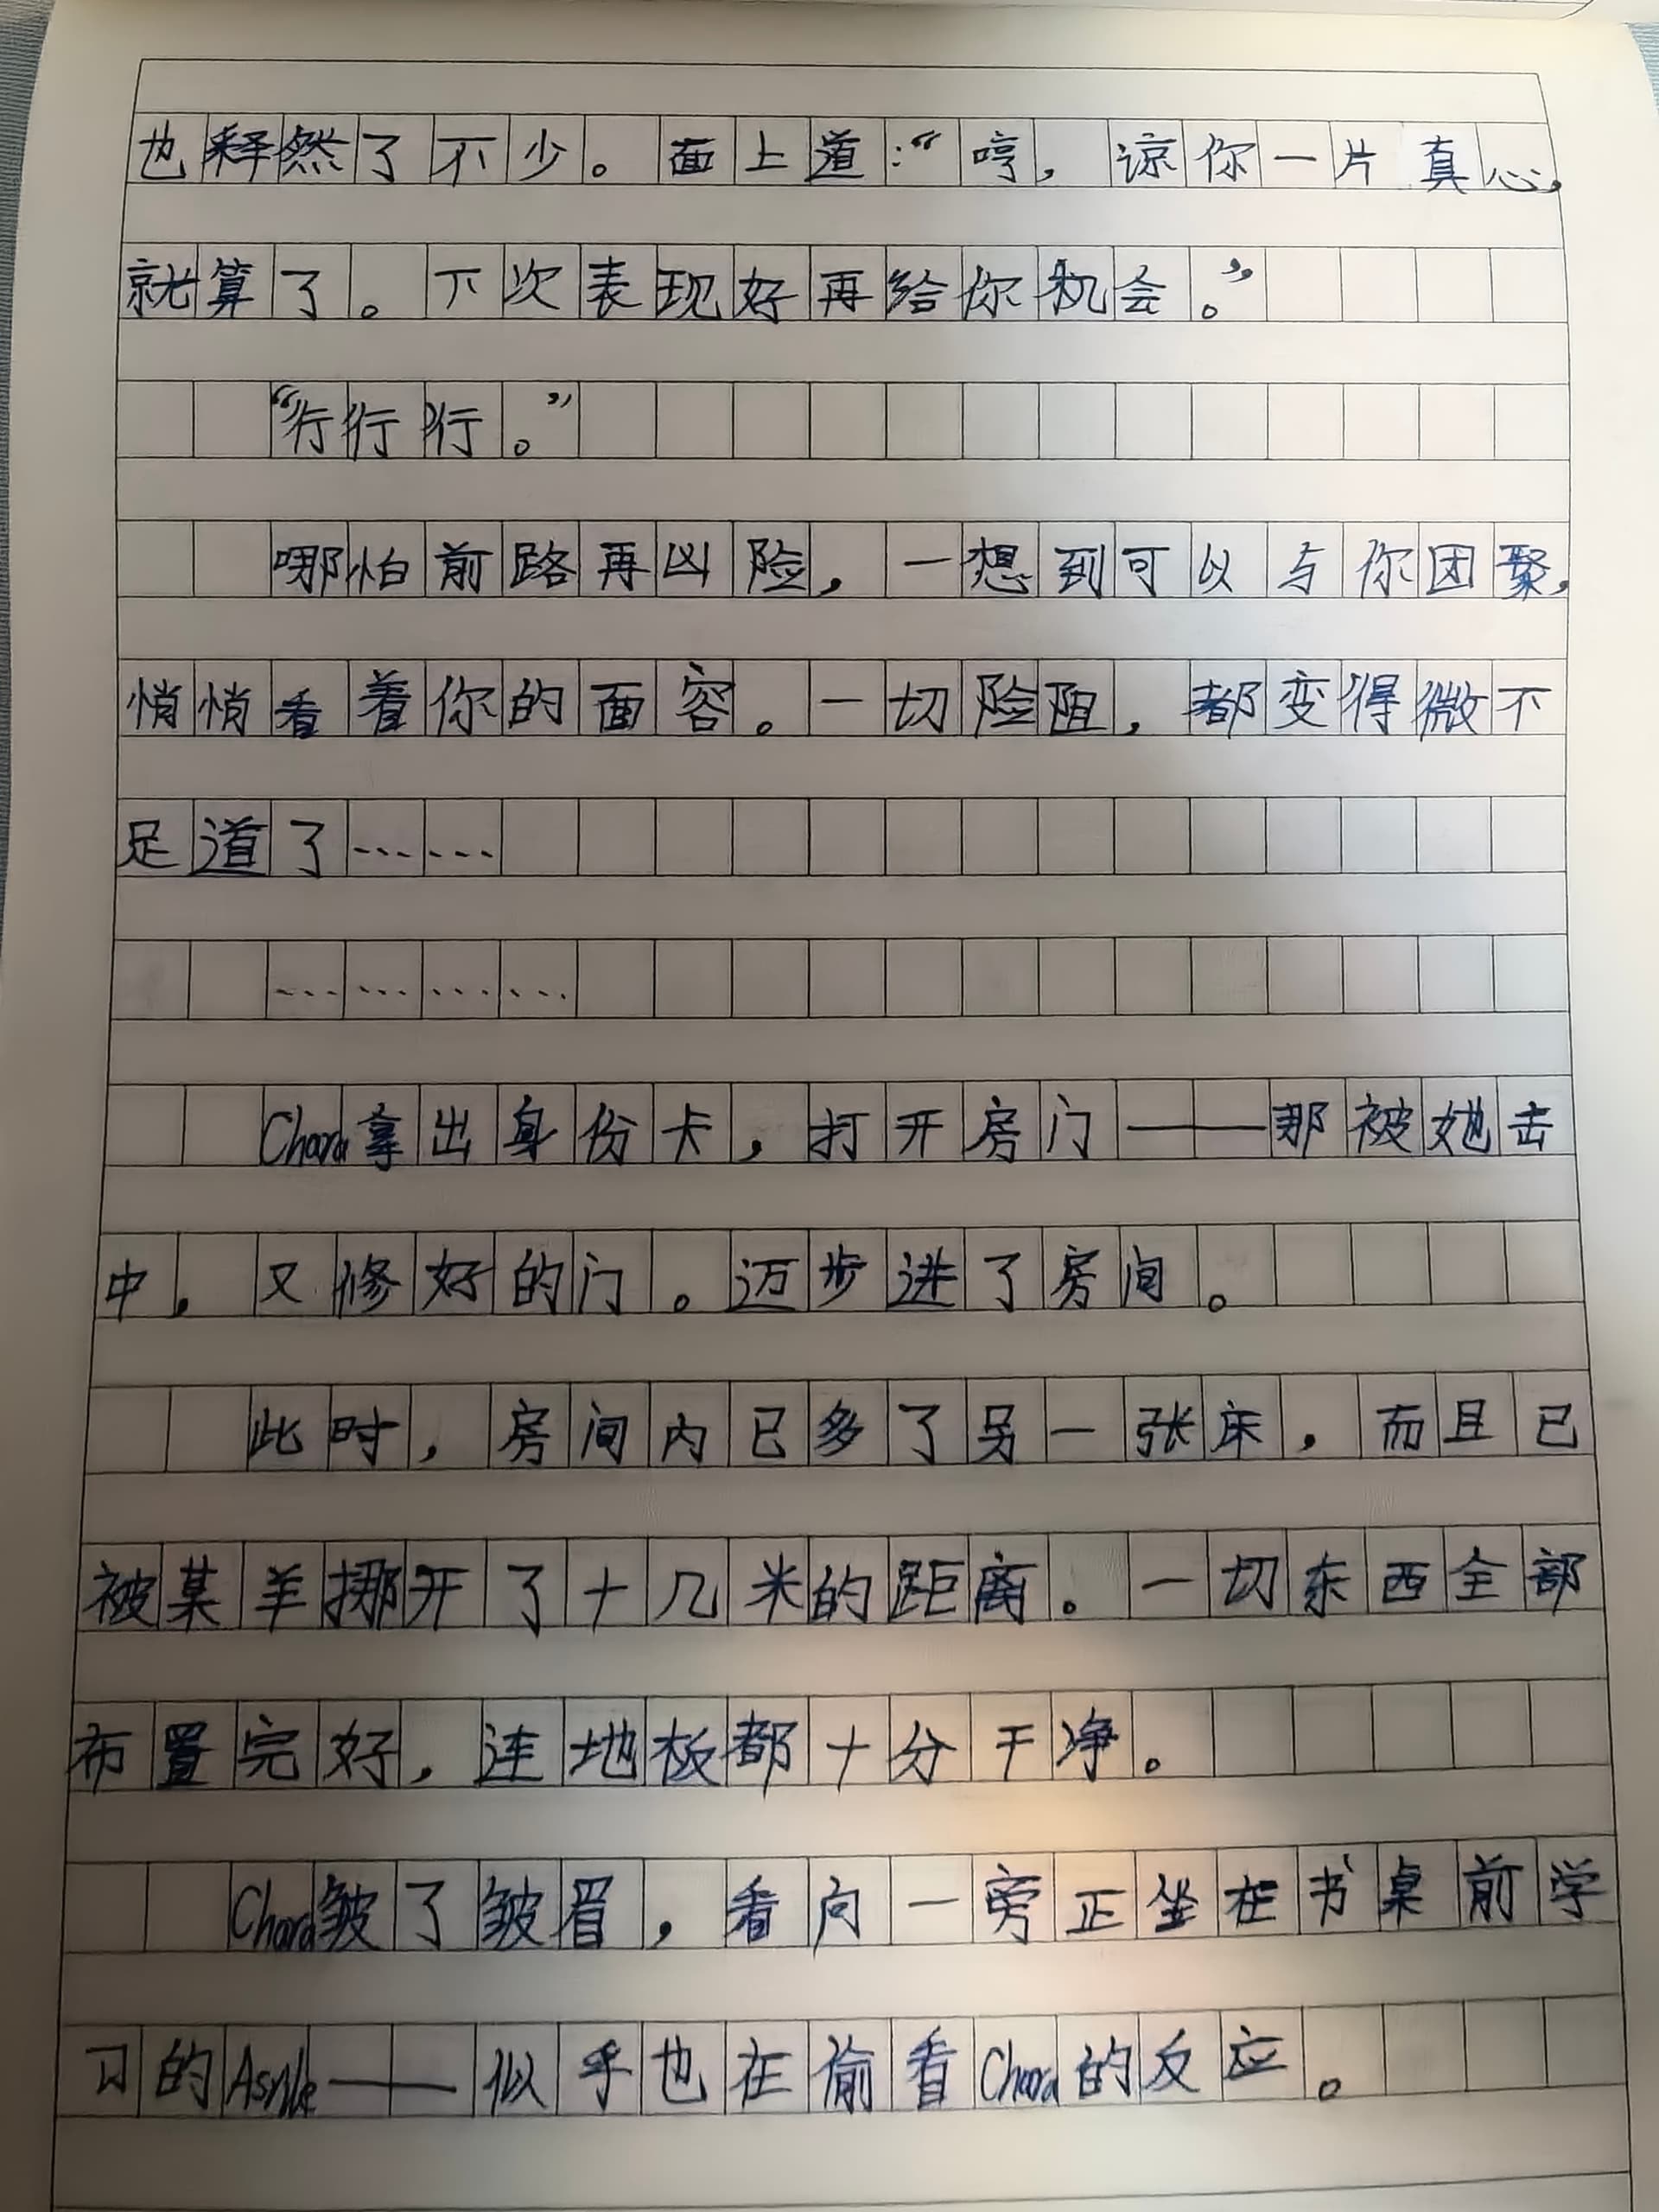 也释然了不少。面上道:“哼,谅你一片真心,
就算了。下次表现好再给你机会。”
“行行行。”
哪怕前路再凶险,一想到可以与你团聚,
悄悄看着你的面容。一切险阻,都变得微不
足道了……
…………
Chara拿出身份卡,打开房门——那被她击
中,又修好的门。迈步进了房间。
此时,房间内已多了另一张床,而且已
被某羊挪开了十几米的距离。一切东西全部
布置完好,连地板都十分干净。
Chara皱了皱眉,看向一旁正坐在书桌前学
习的Asriel——似乎也在偷看Chara的反应。